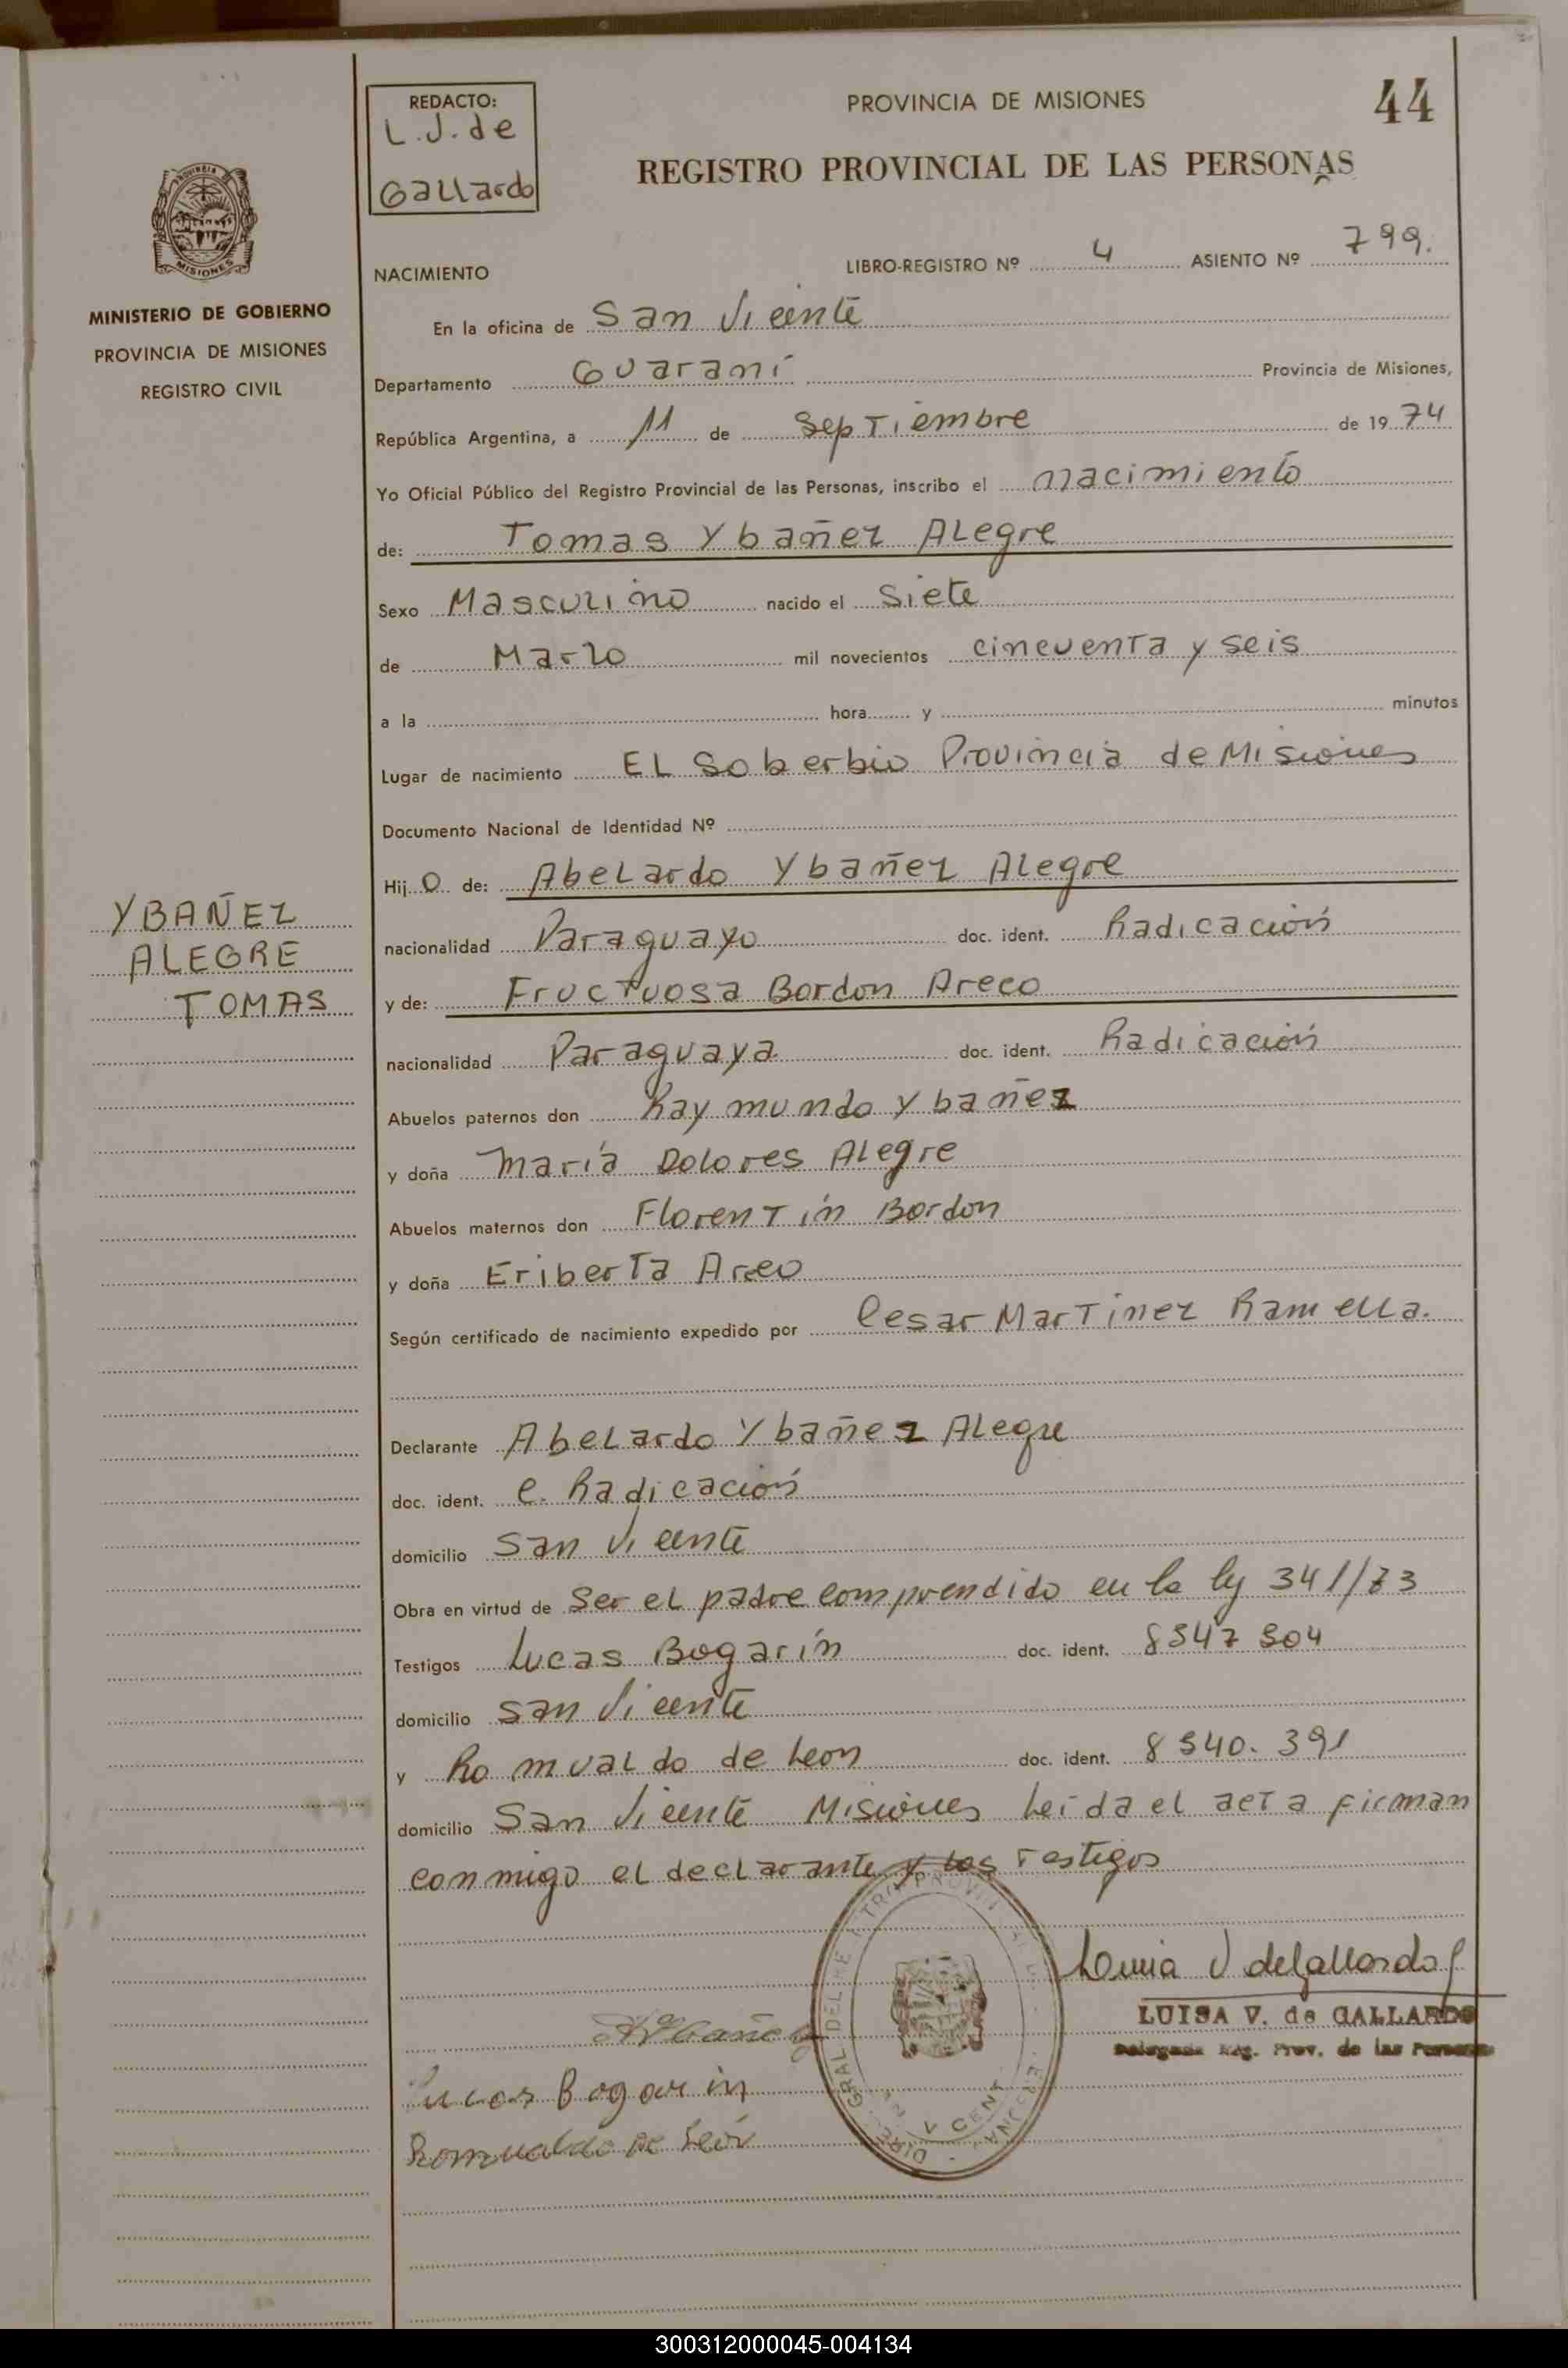 REDACTO:
L.J. de
Gallardo
PROVINCIA DE MISIONES
44
REGISTRO PROVINCIAL DE LAS PERSONAS
MINISTERIO DE GOBIERNO
PROVINCIA DE MISIONES
REGISTRO CIVIL
YBAÑEZ
ALEGRE
TOMAS
NACIMIENTO
LIBRO-REGISTRO Nº 4 ASIENTO Nº 799.
En la oficina de San Vicente
Departamento Guaraní Provincia de Misiones,
República Argentina, a 11 de Septiembre de 1974
Yo Oficial Público del Registro Provincial de las Personas, inscribo el nacimiento
de: Tomas Ybañez Alegre
Sexo Masculino nacido el Siete
de Marzo mil novecientos cincuenta y seis
a la hora y minutos
Lugar de nacimiento El Soberbio Provincia de Misiones
Documento Nacional de Identidad Nº
Hijo de: Abelardo Ybañez Alegre
nacionalidad Paraguayo doc. ident. Radicación
y de: Fructuosa Bordon Areco
nacionalidad Paraguaya doc. ident. Radicación
Abuelos paternos don Raymundo Ybañez
y doña María Dolores Alegre
Abuelos maternos don Florentín Bordon
y doña Eriberta
Según certificado de nacimiento expedido por Cesar Martinez Ramella.
Declarante Abelardo Ybañez Alegre
doc. ident. C. Radicación
domicilio San Vicente
Obra en virtud de Ser el padre comprendido en la ley 341/73
Testigos Lucas Bogarín doc. ident. 8347304
domicilio San Vicente
y Romualdo de Leon doc. ident. 8340.391
domicilio San Vicente Misiones Leída el acta firman
conmigo el declarante y los testigos
LUISA V. de GALLARDO
Delegada Reg. Prov. de las Personas
Lucas Bogarin
Romualdo de León
300312000045-004134